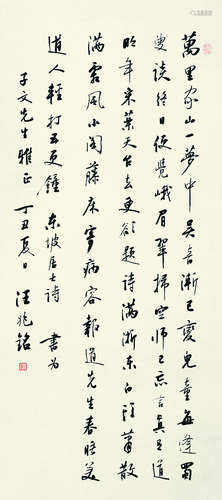 萬里家山一夢中吳音漸已變兒童每逢蜀
叟談終日便覺峨眉翠掃空師已忘言真有道
明年采藥天台去更欲題詩滿浙東白頭蕭散
滿霜風小閣藤床寄病容報道先生春睡美
道人輕打五更鐘 東坡居士詩 書為
子文先生雅正 丁丑夏日 汪兆銘